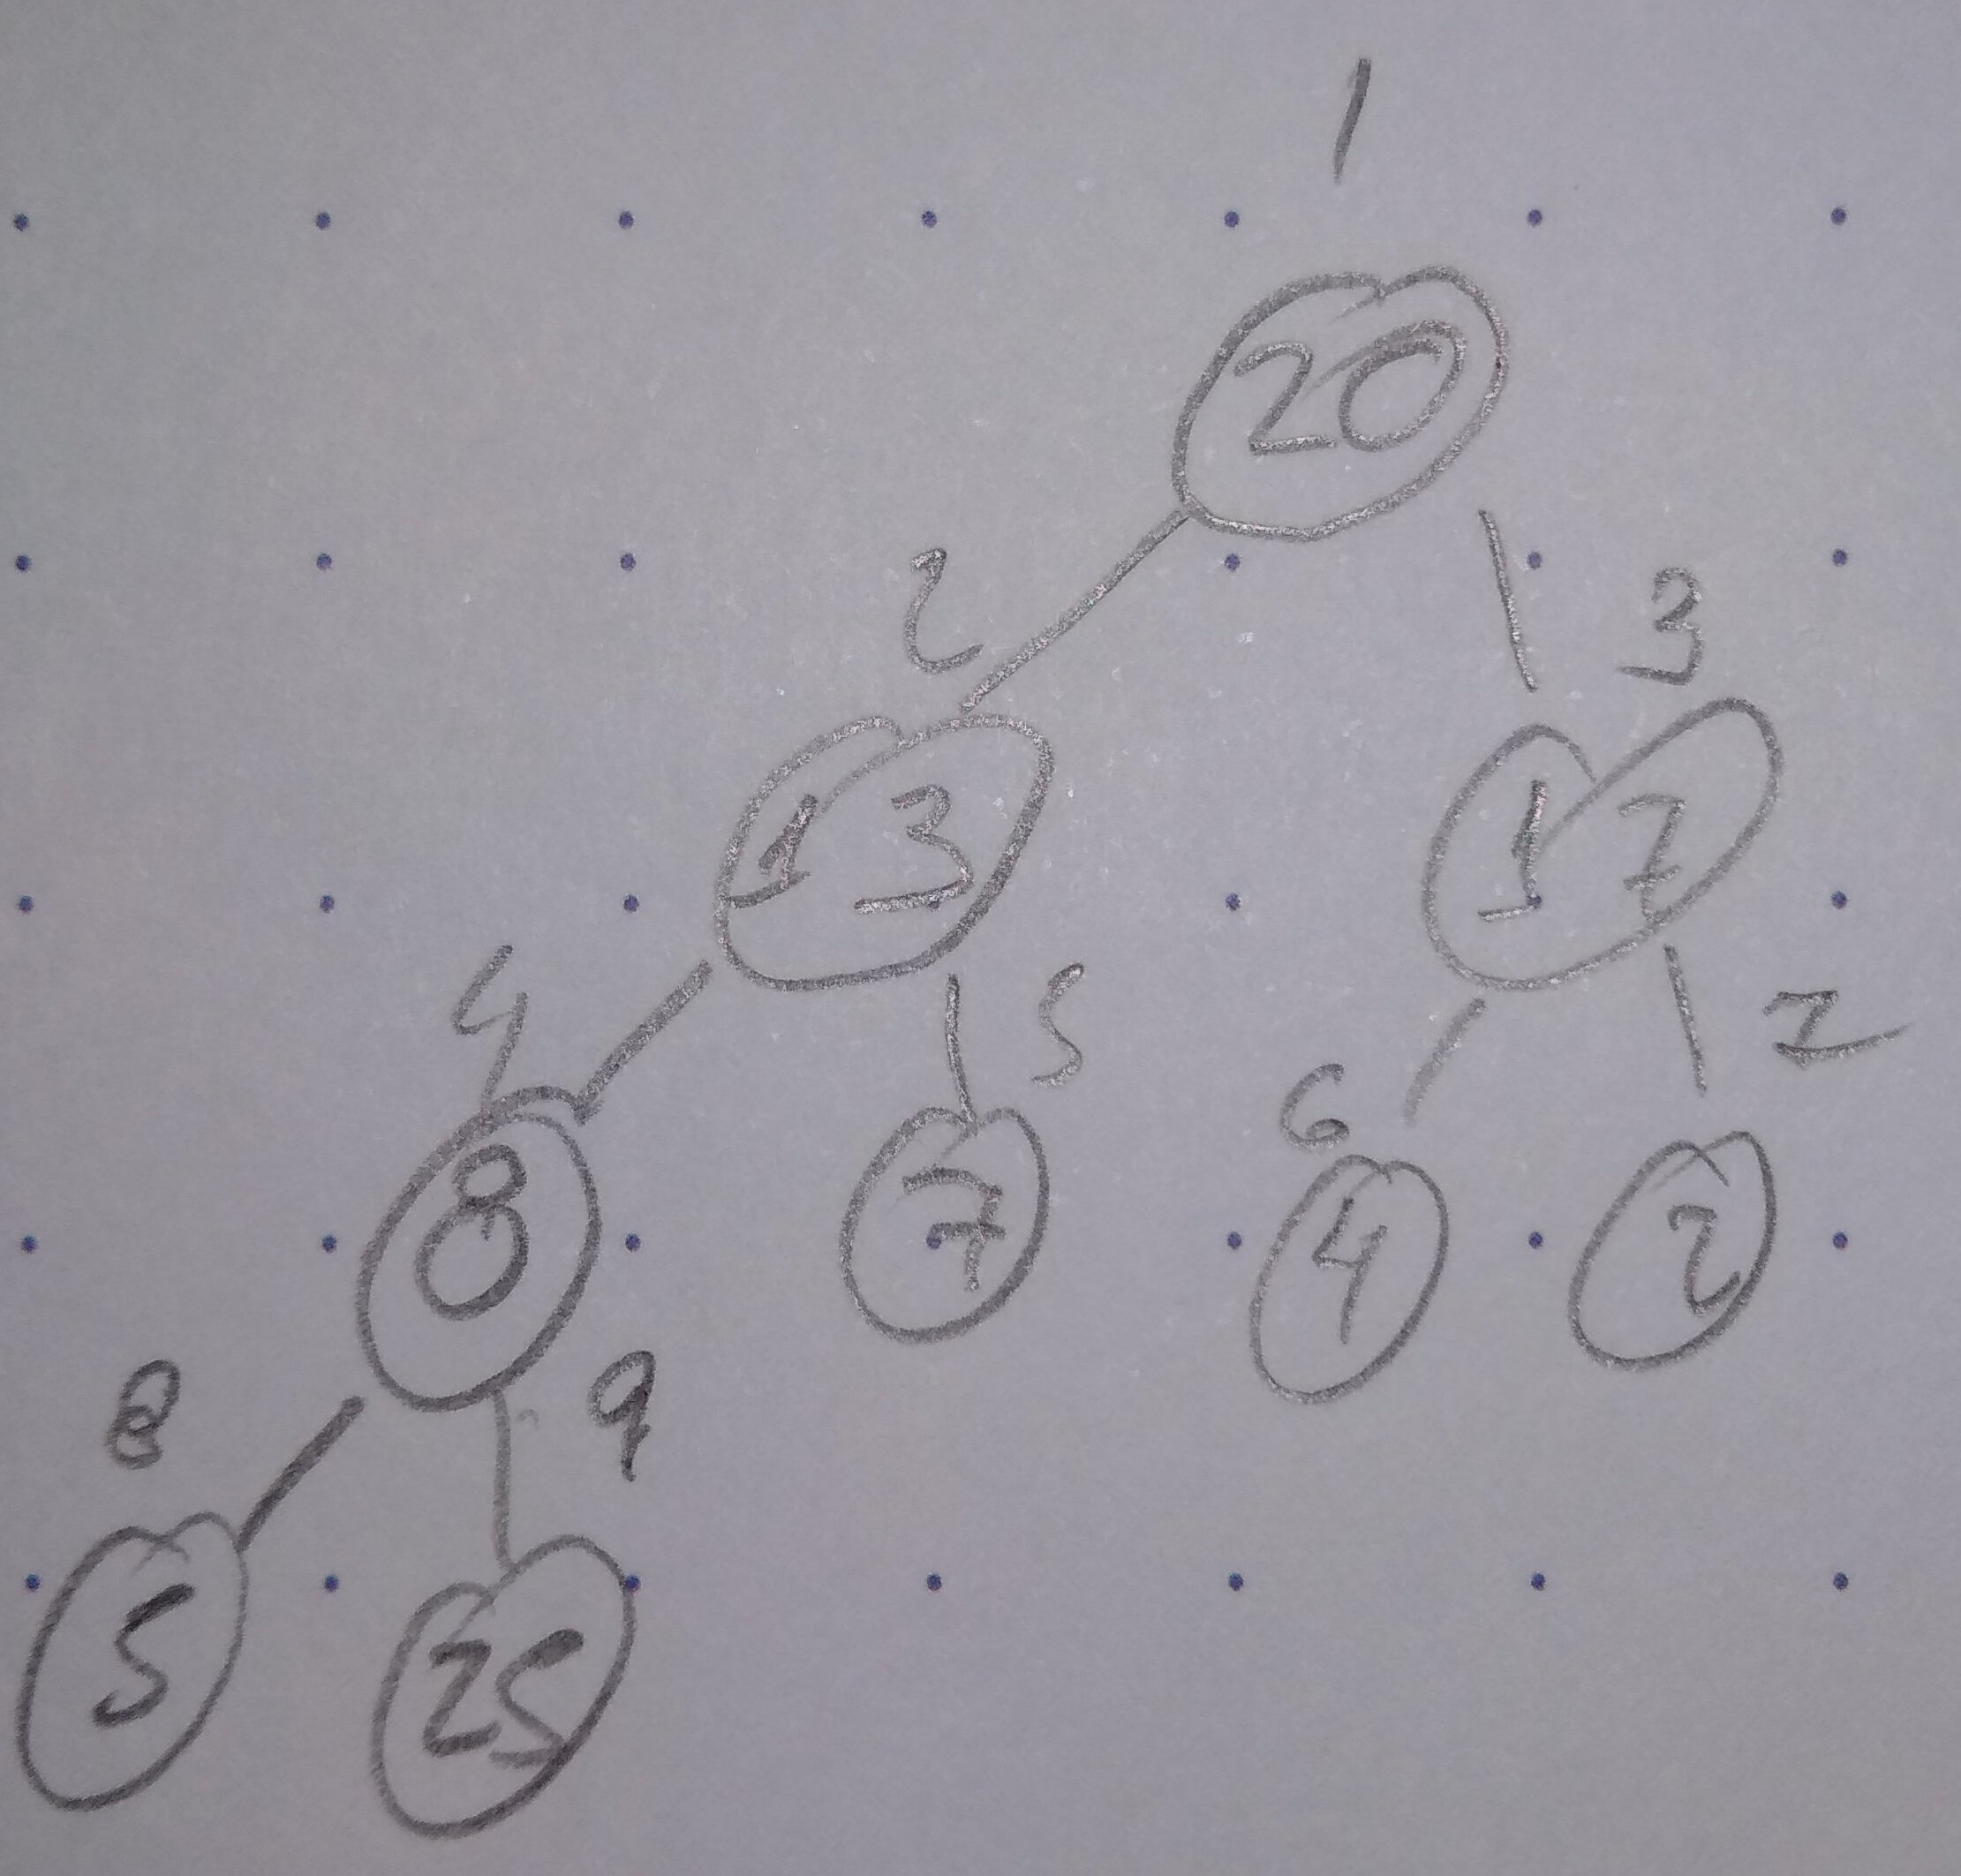 1
20
2 3
13 17
4 5 6 7
8 7 4 2
8 9
5 25